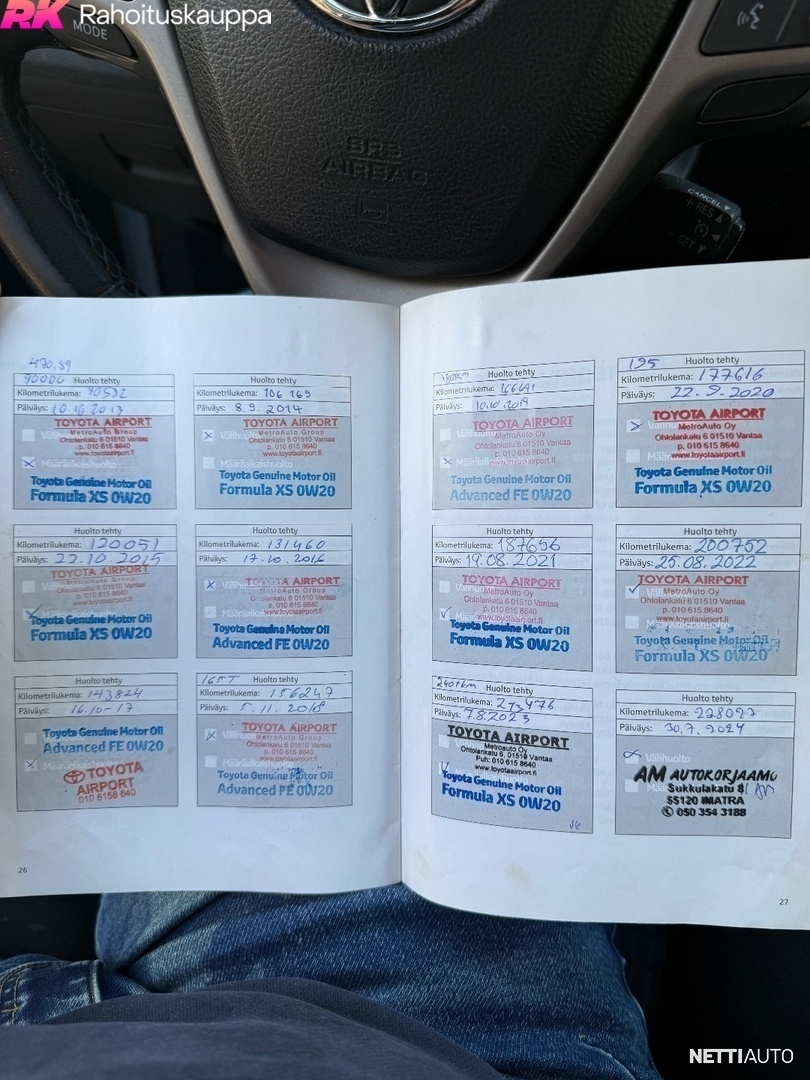 RK Rahoituskauppa
MODE
SRS
AIRBAG
CANCEL
+ RES
- SET
90000
Huolto tehty
Kilometrilukema: 90532
Päiväys: 10.10.2013
TOYOTA AIRPORT
MetroAuto Group
Ohtolankatu 6 01510 Vantaa
p. 010 615 8640
www.toyotaairport.fi
Määräaikaishuolto
Toyota Genuine Motor Oil
Formula XS 0W20
Huolto tehty
Kilometrilukema: 106 169
Päiväys: 8.9.2014
TOYOTA AIRPORT
MetroAuto Group
Ohtolankatu 6 01510 Vantaa
p. 010 615 8640
www.toyotaairport.fi
Määräaikaishuolto
Toyota Genuine Motor Oil
Formula XS 0W20
Huolto tehty
Kilometrilukema: 120051
Päiväys: 22.10.2015
TOYOTA AIRPORT
MetroAuto Group
Ohtolankatu 6 01510 Vantaa
p. 010 615 8640
www.toyotaairport.fi
Toyota Genuine Motor Oil
Formula XS 0W20
Huolto tehty
Kilometrilukema: 131460
Päiväys: 17.10.2016
TOYOTA AIRPORT
MetroAuto Group
Ohtolankatu 6 01510 Vantaa
p. 010 615 8640
www.toyotaairport.fi
Toyota Genuine Motor Oil
Advanced FE 0W20
Huolto tehty
Kilometrilukema: 143824
Päiväys: 16.10-17
Toyota Genuine Motor Oil
Advanced FE 0W20
TOYOTA
AIRPORT
010 6158 640
165T
Huolto tehty
Kilometrilukema: 156247
Päiväys: 5.11.2018
TOYOTA AIRPORT
MetroAuto Group
Ohtolankatu 6 01510 Vantaa
p. 010 615 8640
www.toyotaairport.fi
Toyota Genuine Motor Oil
Advanced FE 0W20
26
Huolto tehty
Kilometrilukema: 166641
Päiväys: 10.10.2019
TOYOTA AIRPORT
MetroAuto Oy
Ohtolankatu 6 01510 Vantaa
p. 010 615 8640
www.toyotaairport.fi
Toyota Genuine Motor Oil
Advanced FE 0W20
195
Huolto tehty
Kilometrilukema: 177616
Päiväys: 22.9.2020
TOYOTA AIRPORT
MetroAuto Oy
Ohtolankatu 6 01510 Vantaa
p. 010 615 8640
www.toyotaairport.fi
Toyota Genuine Motor Oil
Formula XS 0W20
Huolto tehty
Kilometrilukema: 187656
Päiväys: 19.08.2021
TOYOTA AIRPORT
MetroAuto Oy
Ohtolankatu 6 01510 Vantaa
p. 010 615 8640
www.toyotaairport.fi
Toyota Genuine Motor Oil
Formula XS 0W20
Huolto tehty
Kilometrilukema: 200752
Päiväys: 25.08.2022
TOYOTA AIRPORT
MetroAuto Oy
Ohtolankatu 6 01510 Vantaa
p. 010 615 8640
www.toyotaairport.fi
Toyota Genuine Motor Oil
Formula XS 0W20
Huolto tehty
Kilometrilukema: 213476
Päiväys: 7.8.2023
TOYOTA AIRPORT
Metroauto Oy
Ohtolankatu 6, 01510 Vantaa
Puh: 010 615 8640
www.toyotaairport.fi
Toyota Genuine Motor Oil
Formula XS 0W20
Huolto tehty
Kilometrilukema: 228027
Päiväys: 30.7.2024
Välihuolto
AM AUTOKORJAAMO
Sukkulakatu 8
55120 IMATRA
050 354 3188
27
NETTIAUTO